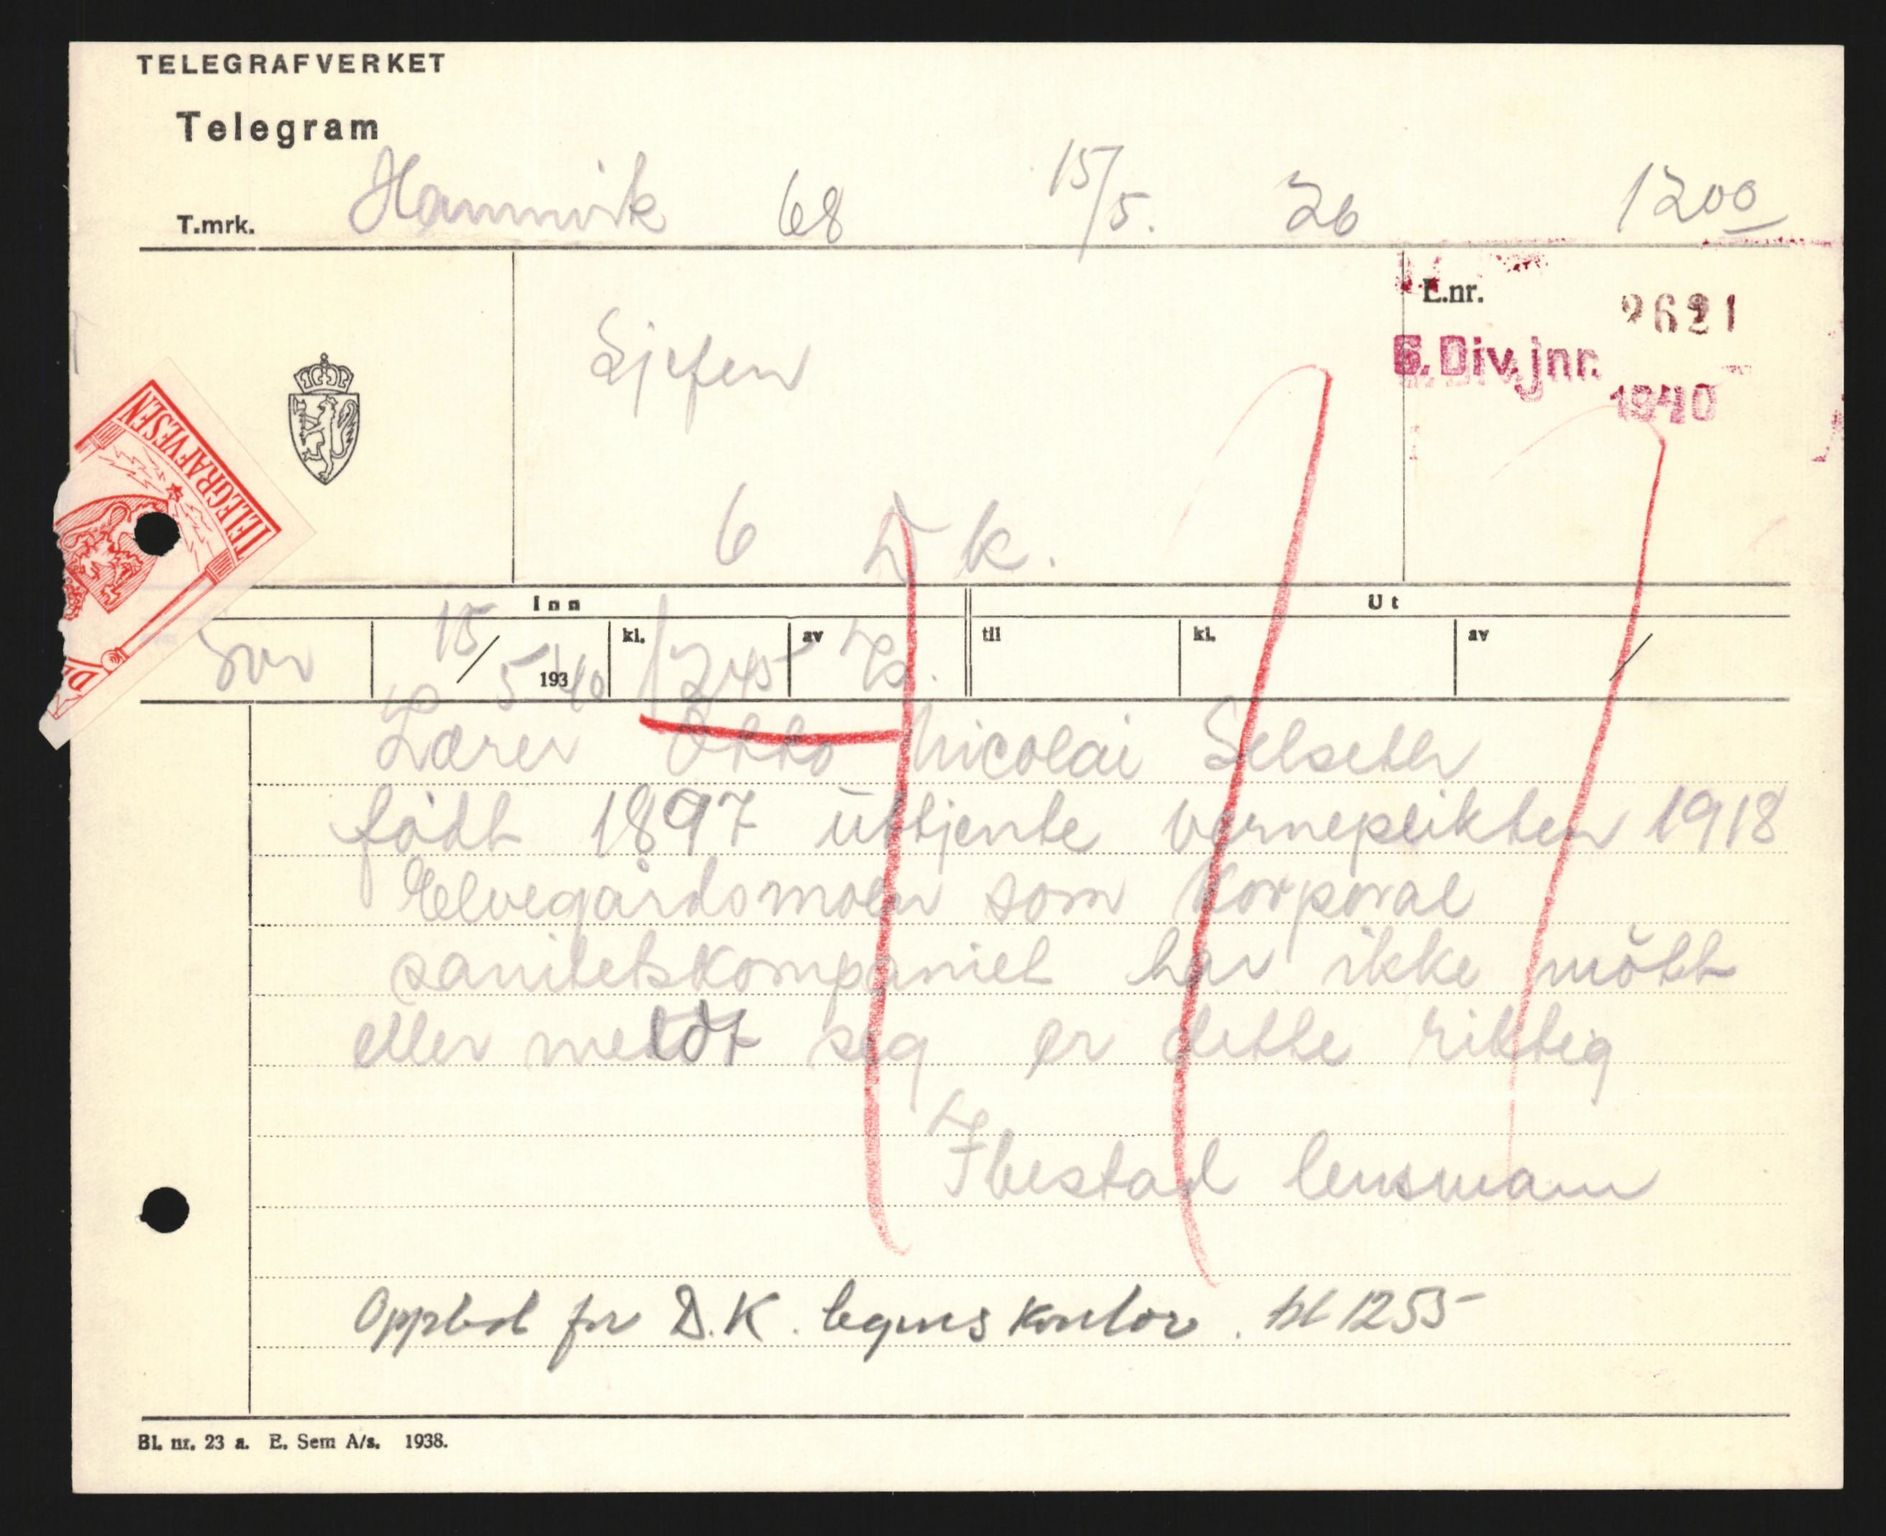 TELEGRAFVERKET
Telegram
T.mrk. Hamnvik 68 15/5. 26 1200
E.nr. 2621
6. Div. jnr.
1940
Sjefen
6 D k.
TELEGRAFVESEN
Inn Ut
Svv 15/5 1940 kl. 1245 av til kl. av /
Lærer Otto Nicolai Selseth
født 1897 uttjente verneplikten 1918
Elvegårdsmoen som korporal
sanitetskompaniet har ikke møtt
eller meldt seg er dette riktig
Ibestad lensmann
Opplest for D.K. legens kontor. kl 1255
Bl. nr. 23 a. E. Sem A/s. 1938.